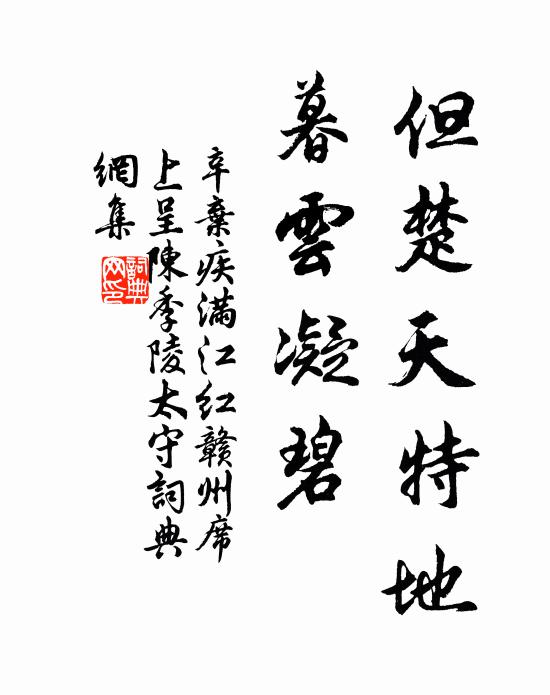 但楚天特地
暮雲凝碧
辛棄疾滿江红贛州席
上呈陳季陵太守詞典
網集
詞典
网印